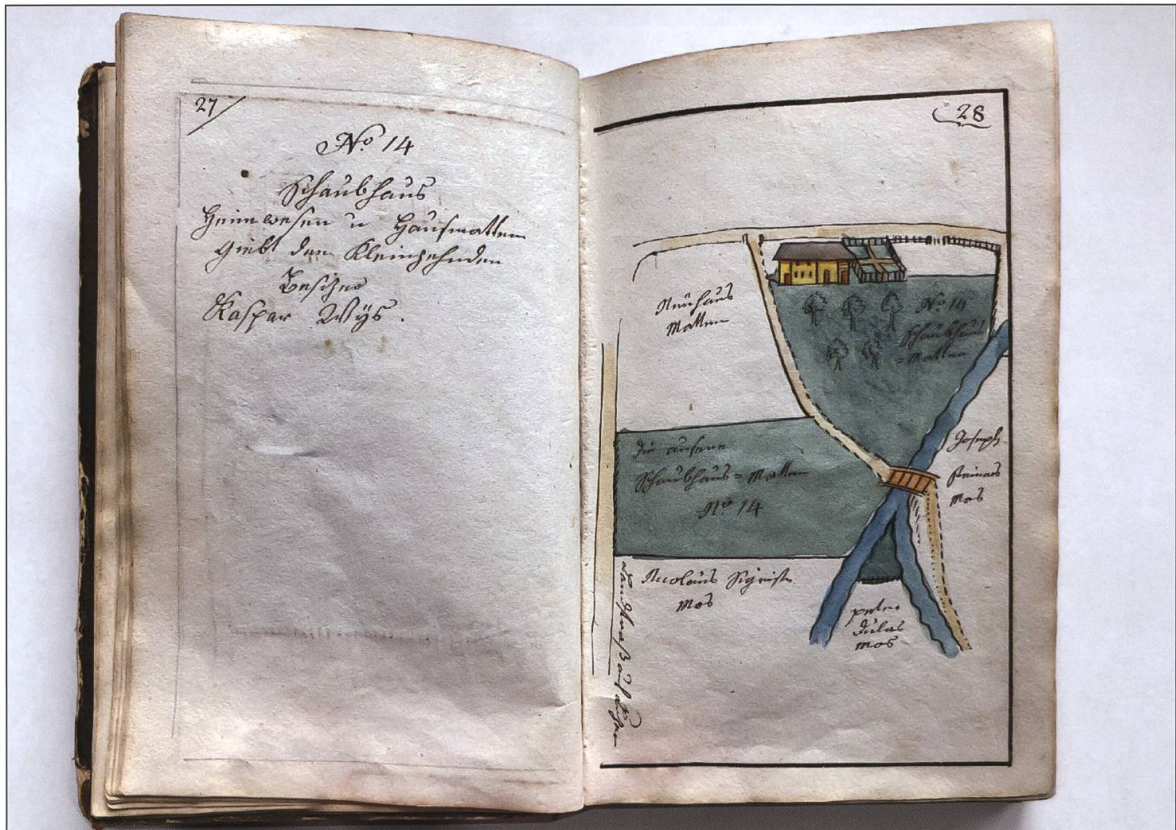 27
No 14
Schaubhaus
Heimwesen u Hausmatten
Giebt den Kleinzehnden
Besizer
Kaspar Wÿs.
28
Neühaus
Matten
No 14
Schaubhaus
=Matten
die aüsere
Schaubhaus=Matten
No 14
Joseph
mos
Nicolaus Sigrist
Mos
peter
mos
Landstraß auf